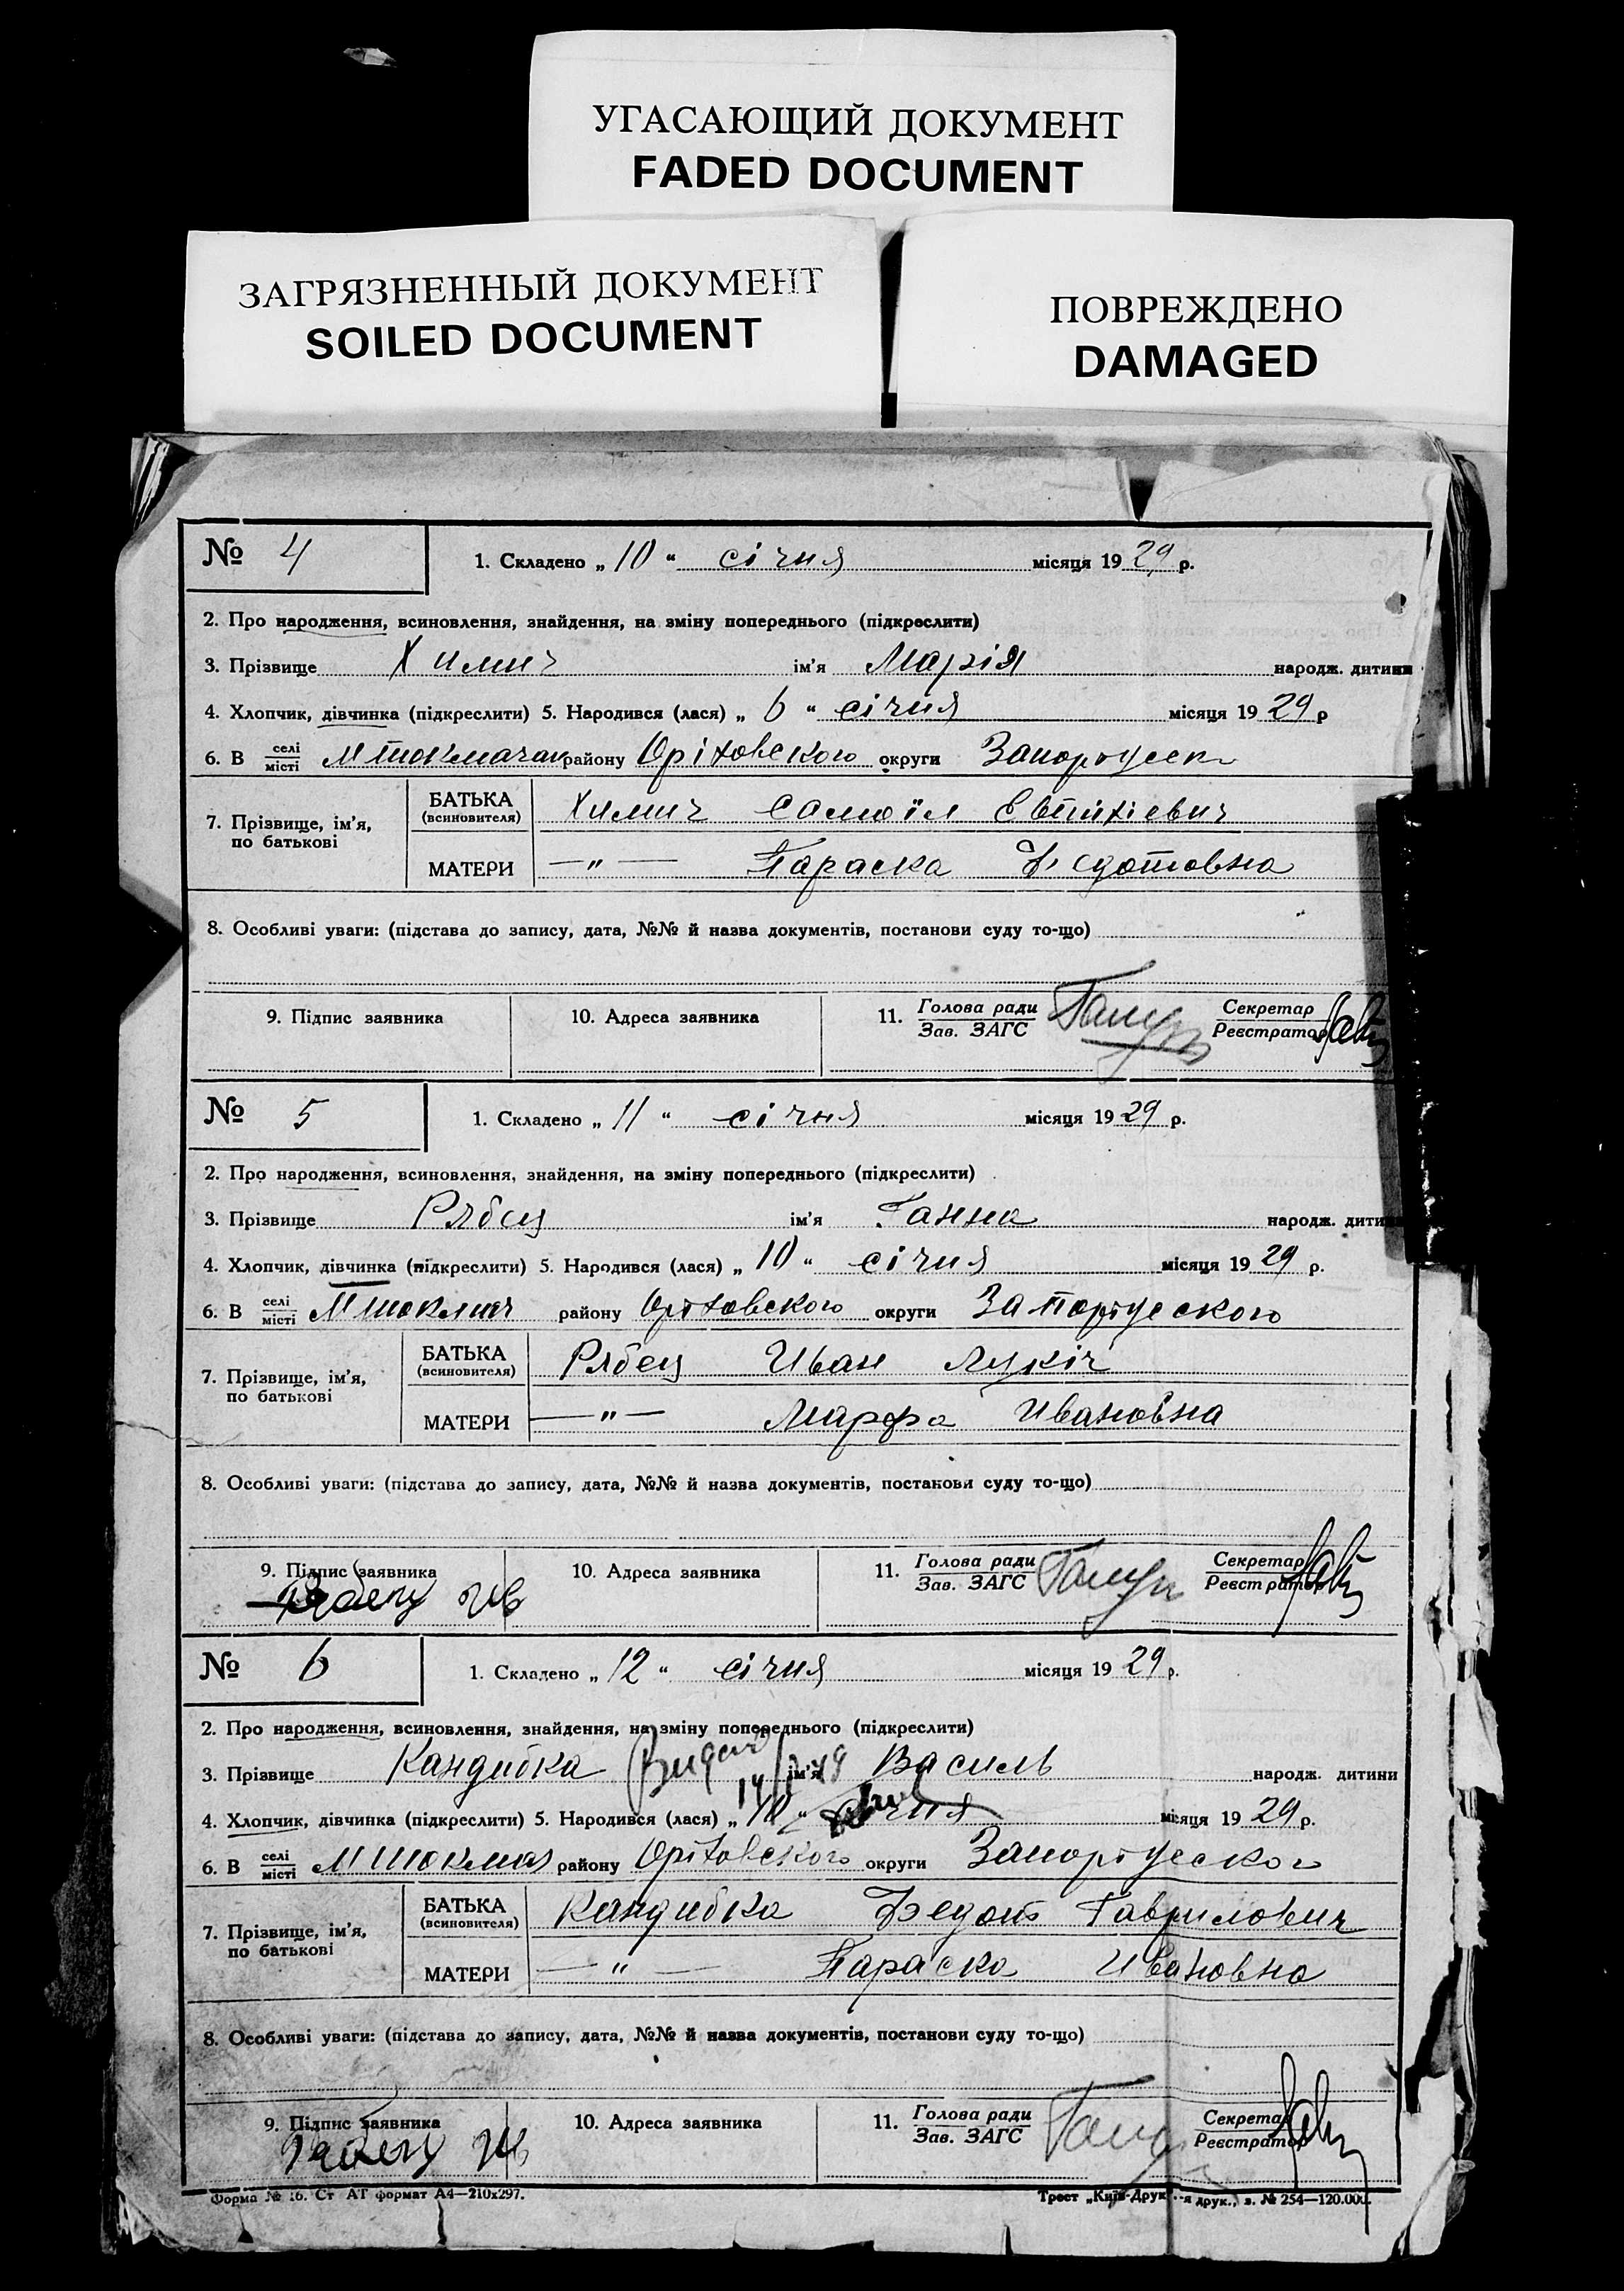 УГАСАЮЩИЙ ДОКУМЕНТ
FADED DOCUMENT
ЗАГРЯЗНЕННЫЙ ДОКУМЕНТ
SOILED DOCUMENT
ПОВРЕЖДЕНО
DAMAGED
№ 4 1. Складено „ 10 “ січня місяця 19 29 р.
2. Про народження, всиновлення, знайдення, на зміну попереднього (підкреслити)
3. Прізвище Химич ім'я Марія народж. дитини
4. Хлопчик, дівчинка (підкреслити) 5. Народився (лася) „ 6 “ січня місяця 19 29 р
6. В селі місті району Оріховского округи
7. Прізвище, ім'я, по батькові БАТЬКА (всиновителя) Химич Самоїл Евтихіевич
МАТЕРИ —„— Параска Федотовна
8. Особливі уваги: (підстава до запису, дата, №№ й назва документів, постанови суду то-що)
9. Підпис заявника 10. Адреса заявника 11. Голова ради Зав. ЗАГС Секретар Реєстратор
№ 5 1. Складено „ 11 “ січня місяця 19 29 р.
2. Про народження, всиновлення, знайдення, на зміну попереднього (підкреслити)
3. Прізвище Рябец ім'я Ганна народж. дити
4. Хлопчик, дівчинка (підкреслити) 5. Народився (лася) „ 10 “ січня місяця 19 29 р.
6. В селі місті М Токмач району Оріховского округи
7. Прізвище, ім'я, по батькові БАТЬКА (всиновителя) Рябец Иван Лукіч
МАТЕРИ —„— Марфа Ивановна
8. Особливі уваги: (підстава до запису, дата, №№ й назва документів, постанови суду то-що)
9. Підпис заявника Рябец Ив 10. Адреса заявника 11. Голова ради Зав. ЗАГС Секретар Реєстратор
№ 6 1. Складено „ 12 “ січня місяця 19 29 р.
2. Про народження, всиновлення, знайдення, на зміну попереднього (підкреслити)
3. Прізвище Кандибка ім'я Василь народж. дитини
4. Хлопчик, дівчинка (підкреслити) 5. Народився (лася) „ 10 “ січня місяця 19 29 р.
6. В селі місті району Оріховского округи
7. Прізвище, ім'я, по батькові БАТЬКА (всиновителя) Кандибка Федот Гаврилович
МАТЕРИ —„— Параска Ивановна
8. Особливі уваги: (підстава до запису, дата, №№ й назва документів, постанови суду то-що)
9. Підпис заявника Рябец Ив 10. Адреса заявника 11. Голова ради Зав. ЗАГС Секретар Реєстратор
Форма № 16. Ст АТ формат А4—210х297. Трест „Київ-Друк“ -я друк., з. № 254—120.000.